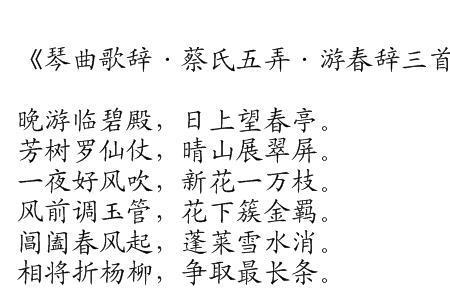 《琴曲歌辞·蔡氏五弄·游春辞三首
晚游临碧殿，日上望春亭。
芳树罗仙仗，晴山展翠屏。
一夜好风吹，新花一万枝。
风前调玉管，花下簇金羁。
阊阖春风起，蓬莱雪水消。
相将折杨柳，争取最长条。